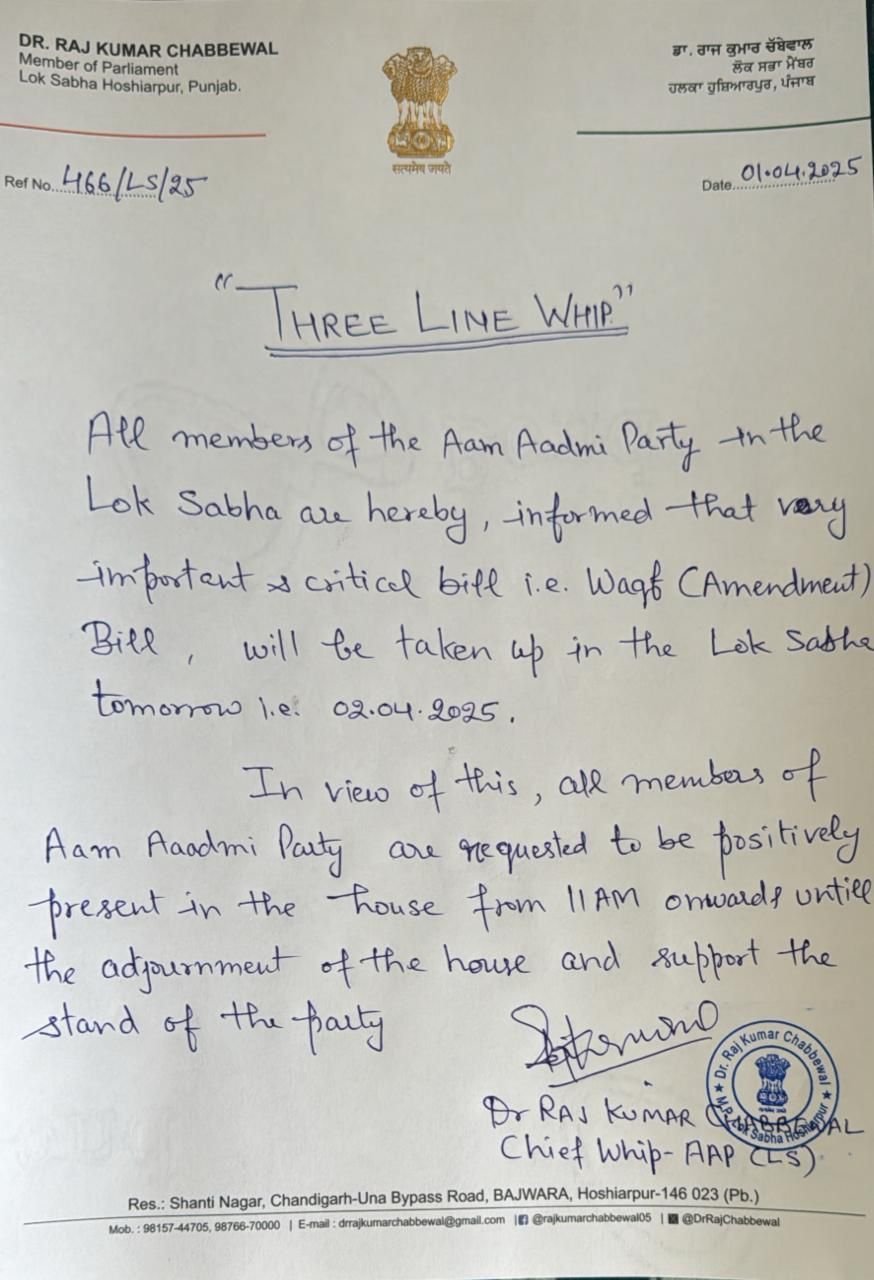 DR. RAJ KUMAR CHABBEWAL
Member of Parliament
Lok Sabha Hoshiarpur, Punjab.
ਡਾ. ਰਾਜ ਕੁਮਾਰ ਚੱਬੇਵਾਲ
ਲੋਕ ਸਭਾ ਮੈਂਬਰ
ਹਲਕਾ ਹੁਸ਼ਿਆਰਪੁਰ, ਪੰਜਾਬ
सत्यमेव जयते
Ref No. 466/LS/25
Date 01.04.2025
"THREE LINE WHIP"
All members of the Aam Aadmi Party in the
Lok Sabha are hereby, informed that very
important & critical bill i.e. Waqf (Amendment)
Bill, will be taken up in the Lok Sabha
tomorrow i.e. 02.04.2025.
In view of this, all members of
Aam Aaadmi Party are requested to be positively
present in the house from 11AM onwards untill
the adjournment of the house and support the
stand of the party
Dr RAJ KUMAR CHABBEWAL
Chief Whip- AAP (LS)
Dr. Raj Kumar Chabbewal
M.P. Lok Sabha Hoshiarpur
Res.: Shanti Nagar, Chandigarh-Una Bypass Road, BAJWARA, Hoshiarpur-146 023 (Pb.)
Mob. : 98157-44705, 98766-70000 | E-mail : drrajkumarchabbewal@gmail.com | @rajkumarchabbewal05 | @DrRajChabbewal